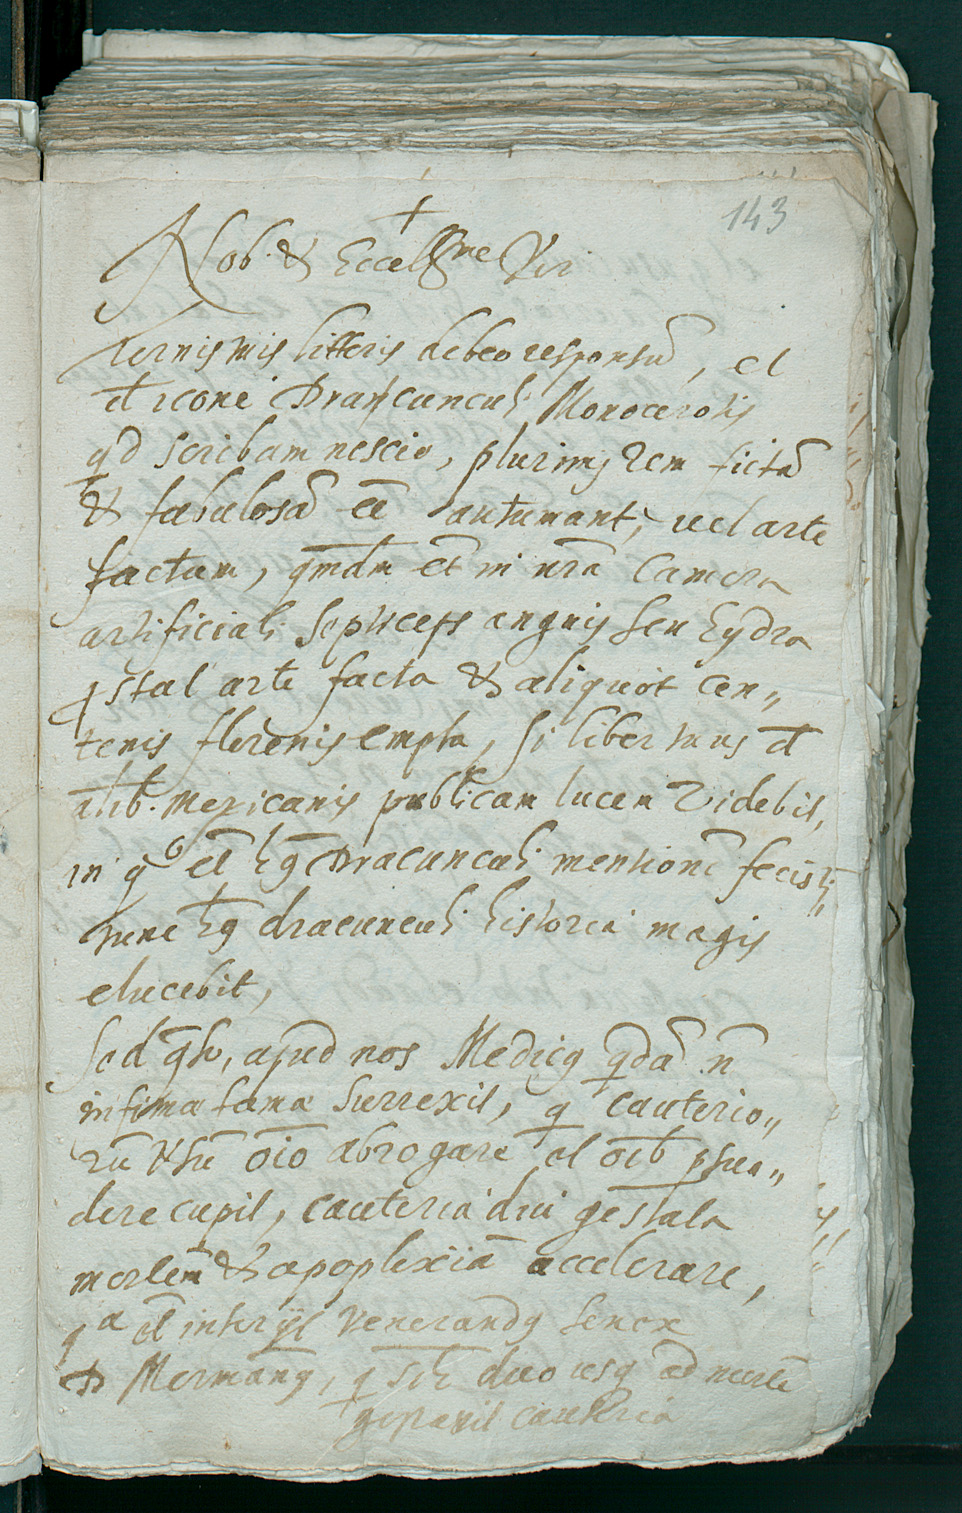 143
†
Nob. & Eccell^me Vir
Ternis tuis litteris debeo responsū, et
de icone Dracunculi Monocerotis
qd scribam nescio, plurimi rem fictā
& fabulosā eē autumant, vel arte
factam, qmdm et in nrā Camera
artificiali septiceps anguis seu Hydra
pstat arte facta & aliquot cen„
tenis florenis empta, si liber tuus de
aīlib. Mexicanis publicam lucem videbit,
in q° et hq Dracunculi mentionē fecisti„
tunc hq dracunculi historia magis
elucebit,
Sed , apud nos Medicq qdā n̄
infima fama surrexit, q cauterio„
rū usū oīo abrogare et oīb psua„
dere cupit, cauteria diu gestata
mortem & apoplexiā accelerare,
q^a et interijt Venerandq senex
D Mermanq, q duo usq ad mortē
gestavit cauteria